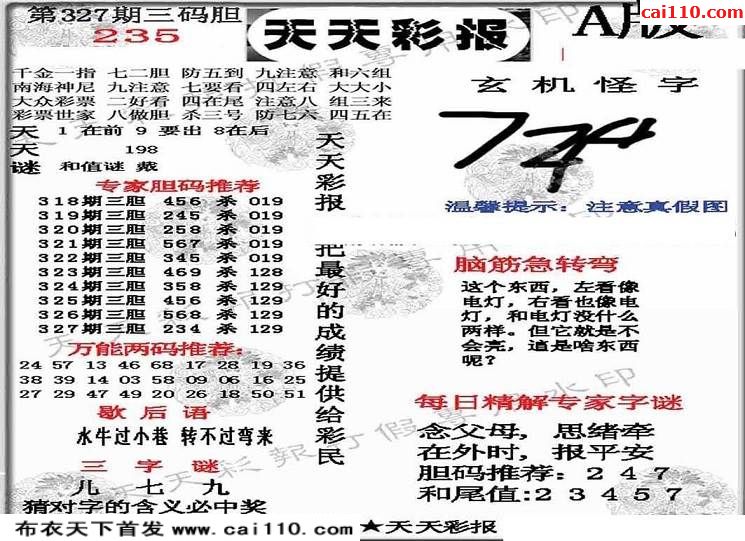 第327期三码胆
235
天天彩报
A版
cai110.com
千金一指 七二胆 防五到 九注意 和六组
南海神尼 九注意 七要看 四左右 大大小
大众彩票 二好看 四在尾 注意八 组三来
彩票世家 八做胆 杀三号 防七六 四五在
天 1在前 9要出 8在后
天 198
谜 和值谜 戴
专家胆码推荐
318期三胆 456 杀 019
319期三胆 245 杀 019
320期三胆 258 杀 019
321期三胆 567 杀 019
322期三胆 345 杀 019
323期三胆 469 杀 128
324期三胆 358 杀 129
325期三胆 456 杀 129
326期三胆 568 杀 129
327期三胆 234 杀 129
万能两码推荐:
24 57 13 46 68 17 28 19 36
38 39 14 03 58 09 06 16 25
27 29 47 49 20 26 18 50 51
歇后语
水牛过小巷 转不过弯来
三字谜
儿 七 九
猜对字的含义必中奖
天天彩报
把最好的成绩提供给彩民
玄机怪字
温馨提示: 注意真假图
脑筋急转弯
这个东西，左看像
电灯，右看也像电
灯，和电灯没什么
两样。但它就是不
会亮，這是啥东西
呢?
每日精解专家字谜
念父母, 思绪牵
在外时, 报平安
胆码推荐: 2 4 7
和尾值:2 3 4 5 7
布衣天下首发 www.cai110.com ★天天彩报